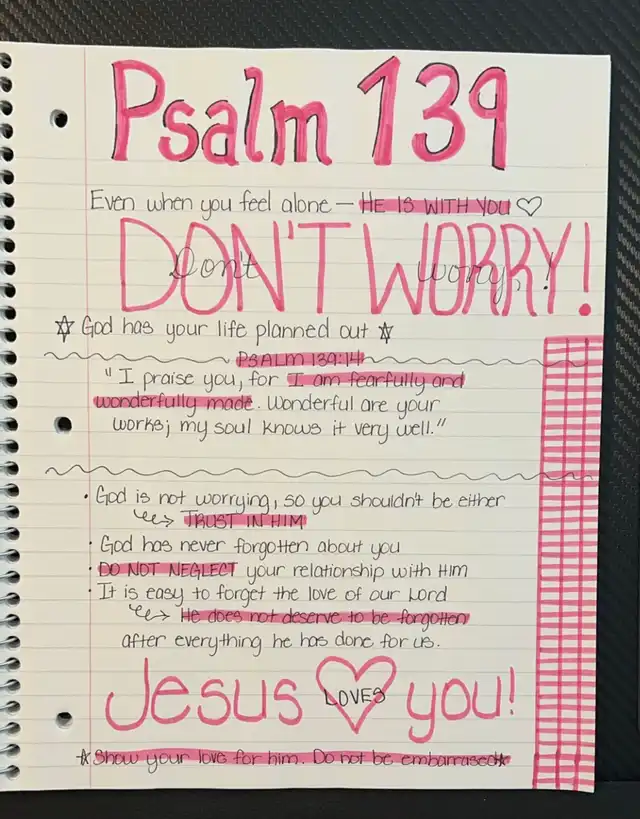 Psalm 139
Even when you feel alone — HE IS WITH YOU ♡
DON'T WORRY!
Don't worry!
☆ God has your life planned out ☆
PSALM 139:14
"I praise you, for I am fearfully and
wonderfully made. Wonderful are your
works; my soul knows it very well."
• God is not worrying, so you shouldn't be either
↪ TRUST IN HIM
• God has never forgotten about you
• DO NOT NEGLECT your relationship with HIM
• It is easy to forget the love of our Lord
↪ He does not deserve to be forgotten
after everything he has done for us.
Jesus LOVES you!
☆ Show your love for him. Do not be embarrased ☆